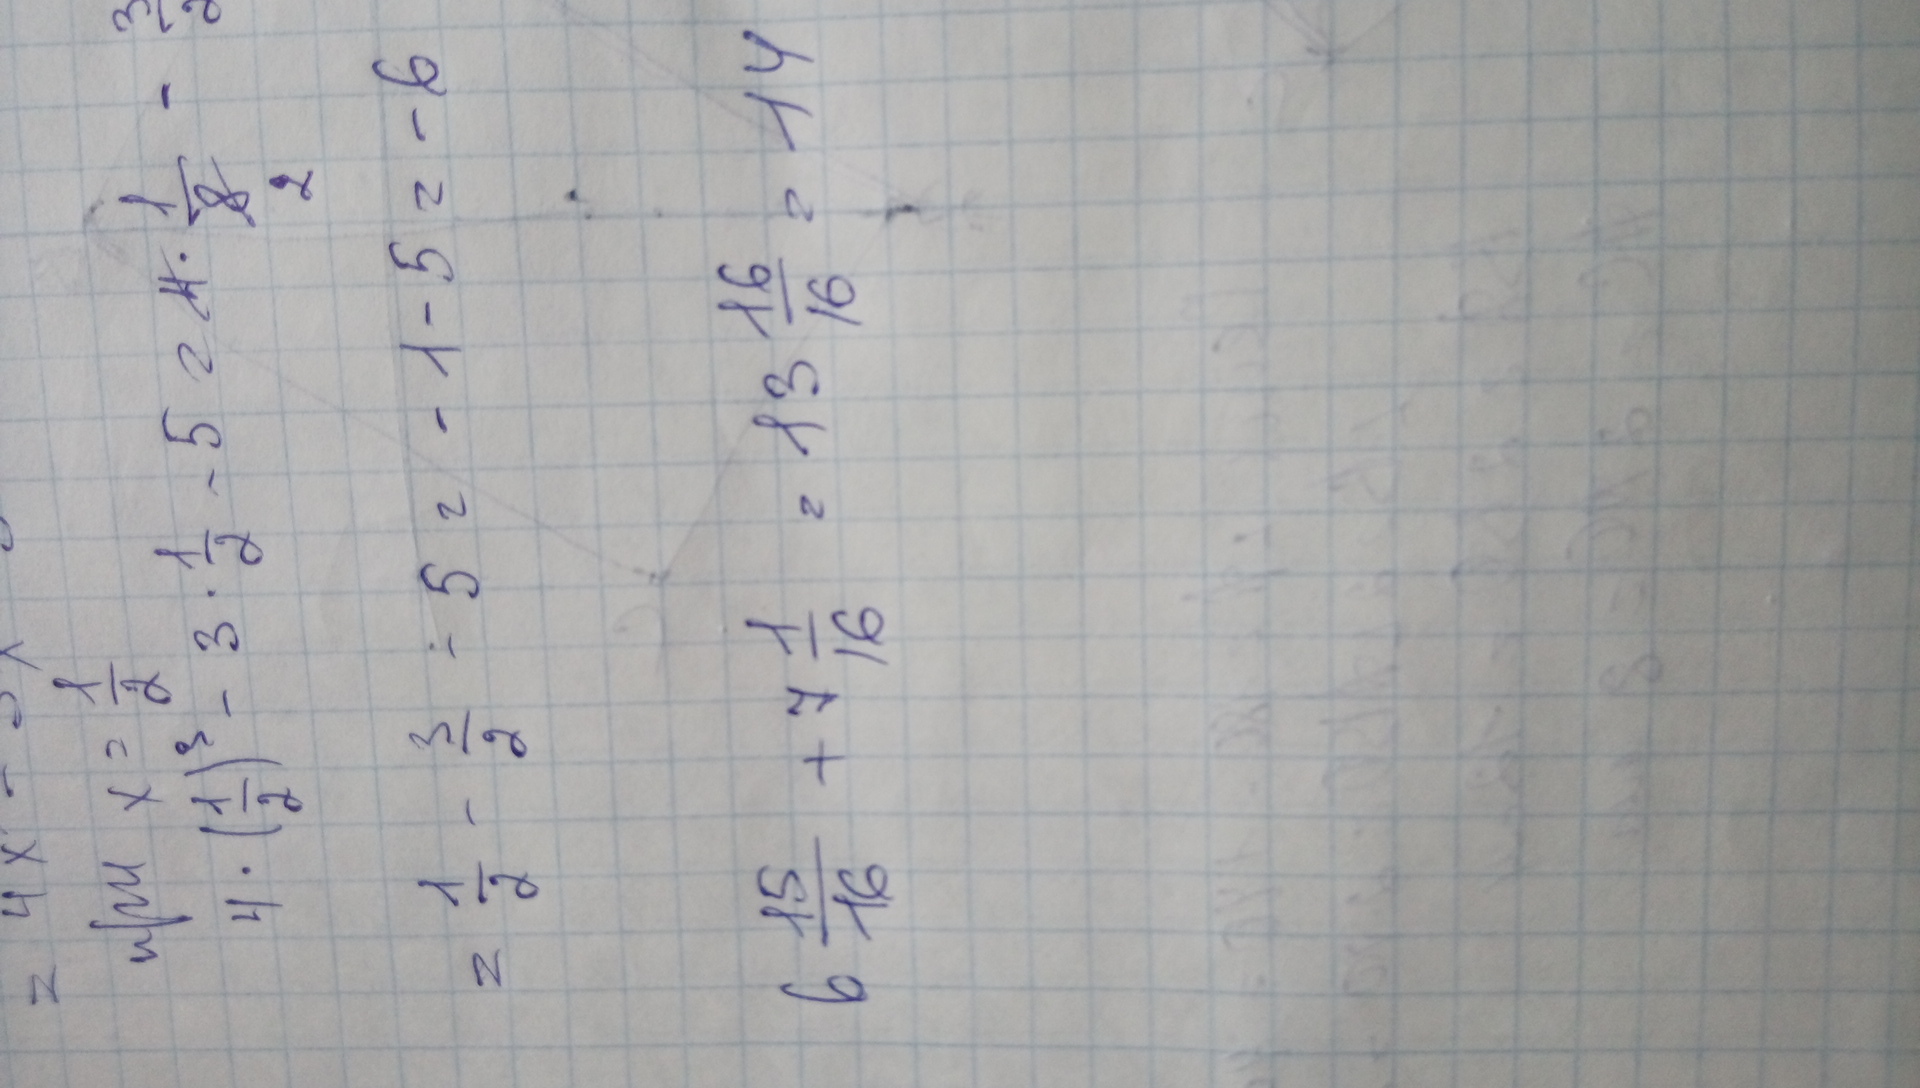 = 4x³ - 3x
при x = 1/2
4 · (1/2)³ - 3 · 1/2 - 5 = 4 · 1/8 - 3/2
2
= 1/2 - 3/2 - 5 = -1 - 5 = -6
6 15/16 + 7 1/16 = 13 16/16 = 14